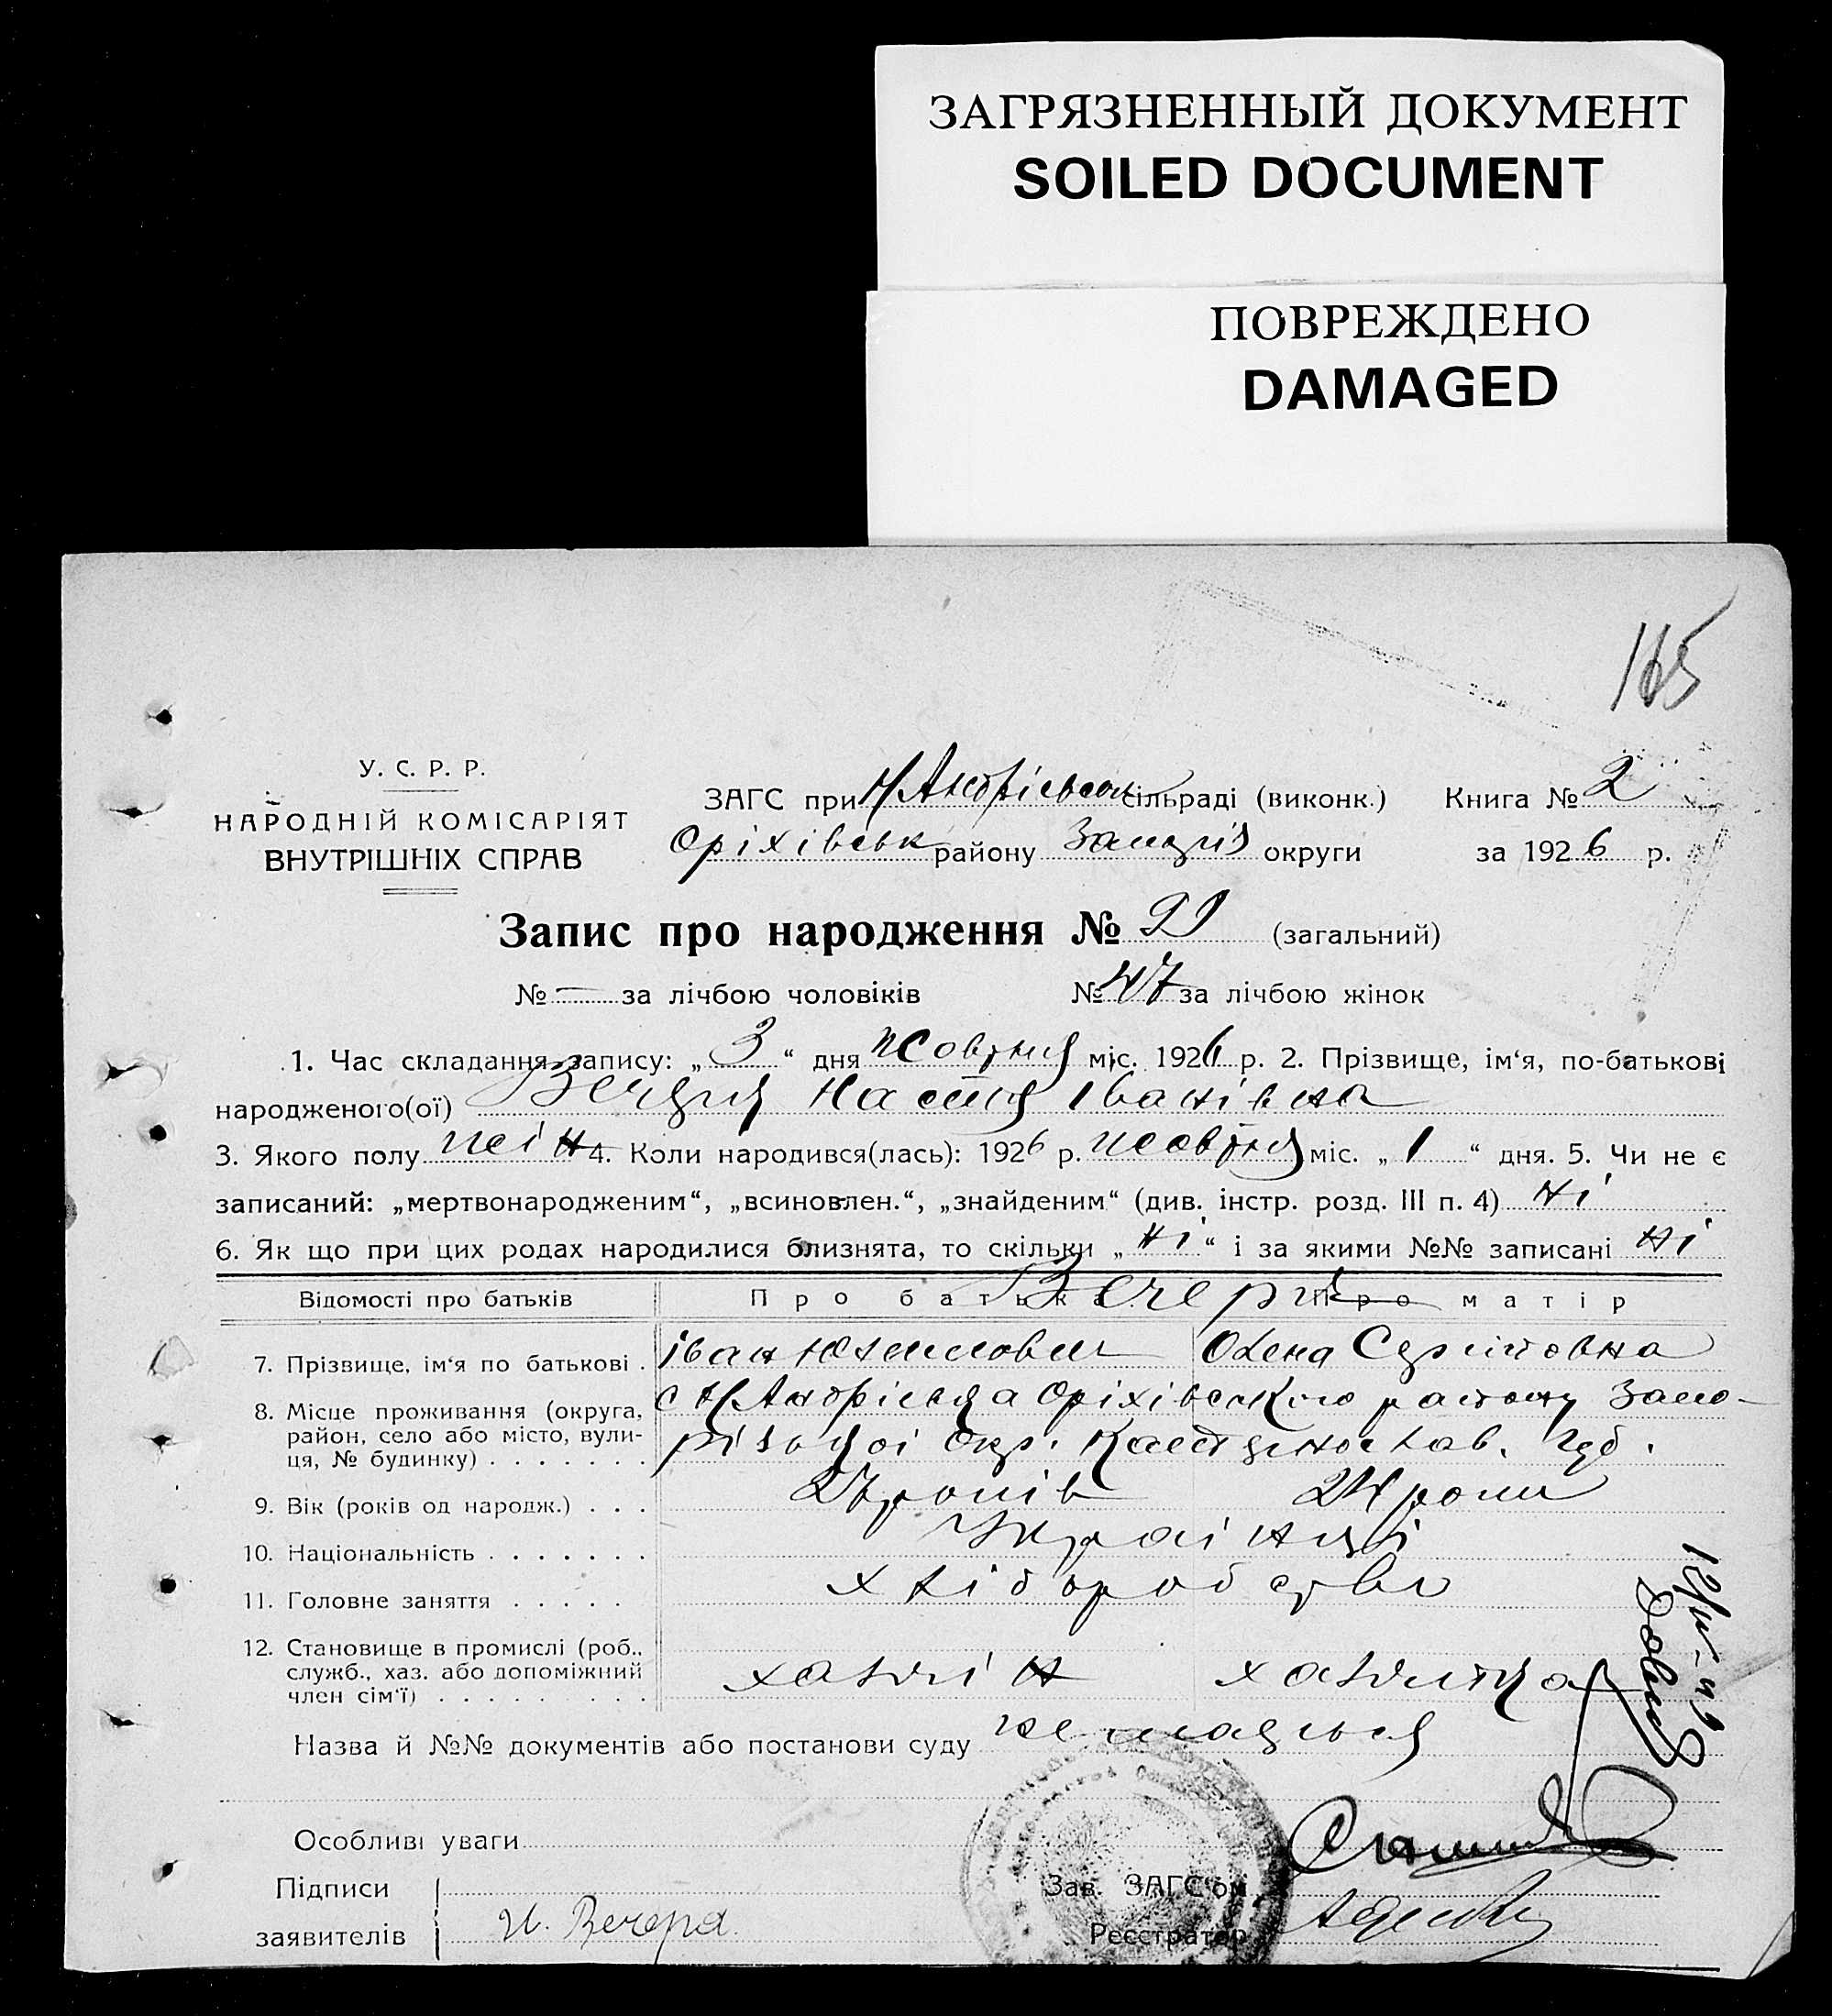 ЗАГРЯЗНЕННЫЙ ДОКУМЕНТ
SOILED DOCUMENT
ПОВРЕЖДЕНО
DAMAGED
165
У. С. Р. Р.
НАРОДНІЙ КОМІСАРІЯТ
ВНУТРІШНІХ СПРАВ
ЗАГС при сільраді (виконк.) Книга № 2
Оріхівськ району округи за 1926 р.
Запис про народження № (загальний)
№ — за лічбою чоловіків № 47 за лічбою жінок
1. Час складання запису: „ 3 “ дня жовтня міс. 1926 р. 2. Прізвище, ім‘я, по-батькові
народженого(ої) Настя Іванівна
3. Якого полу жін 4. Коли народився(лась): 1926 р. жовтня міс. „ 1 “ дня. 5. Чи не є
записаний: „мертвонародженим“, „всиновлен.“, „знайденим“ (див. інстр. розд. III п. 4) Ні
6. Як що при цих родах народилися близнята, то скільки „ Ні “ і за якими №№ записані Ні
Відомості про батьків Про батька Про матір
Вечеря
7. Прізвище, ім‘я по батькові . Іван Олена
8. Місце проживання (округа, район, село або місто, вулиця, № будинку) . . . . . . . с Н Андрієвка Оріхівського району Запо-
різької Окр. Катеринослав. Губ.
9. Вік (років од народж.) . . . років 24 роки
10. Національність . . . . . . . Українці
11. Головне заняття . . . . . хліборобство
12. Становище в промислі (роб., служб., хаз. або допоміжний член сім‘ї) . . . . . . . . . хазяїн хазяйка
Назва й №№ документів або постанови суду
Особливі уваги
Підписи
заявителів И. Вечеря
Зав. ЗАГС‘ом
Реєстратор